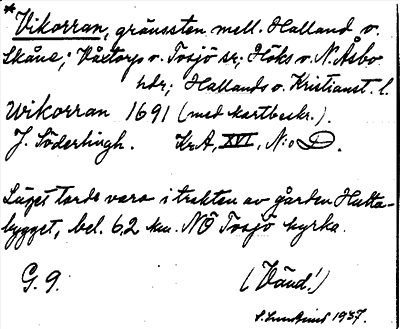 *Vikorran, gränssten mell. Halland o.
Skåne; Våxtorp o. Tosjö sr; Höks o. N. Åsbo
hdr; Hallands o. Kristianst. l.
Wikorran 1691 (med kartbeskr.).
J. Söderlingh. KrA, XVI, N:o D.
Läget torde vara i trakten av gården Hulta-
bygget, bel. 6,2 km. NÖ Tosjö kyrka.
G. 9. (Vänd!)
1937.